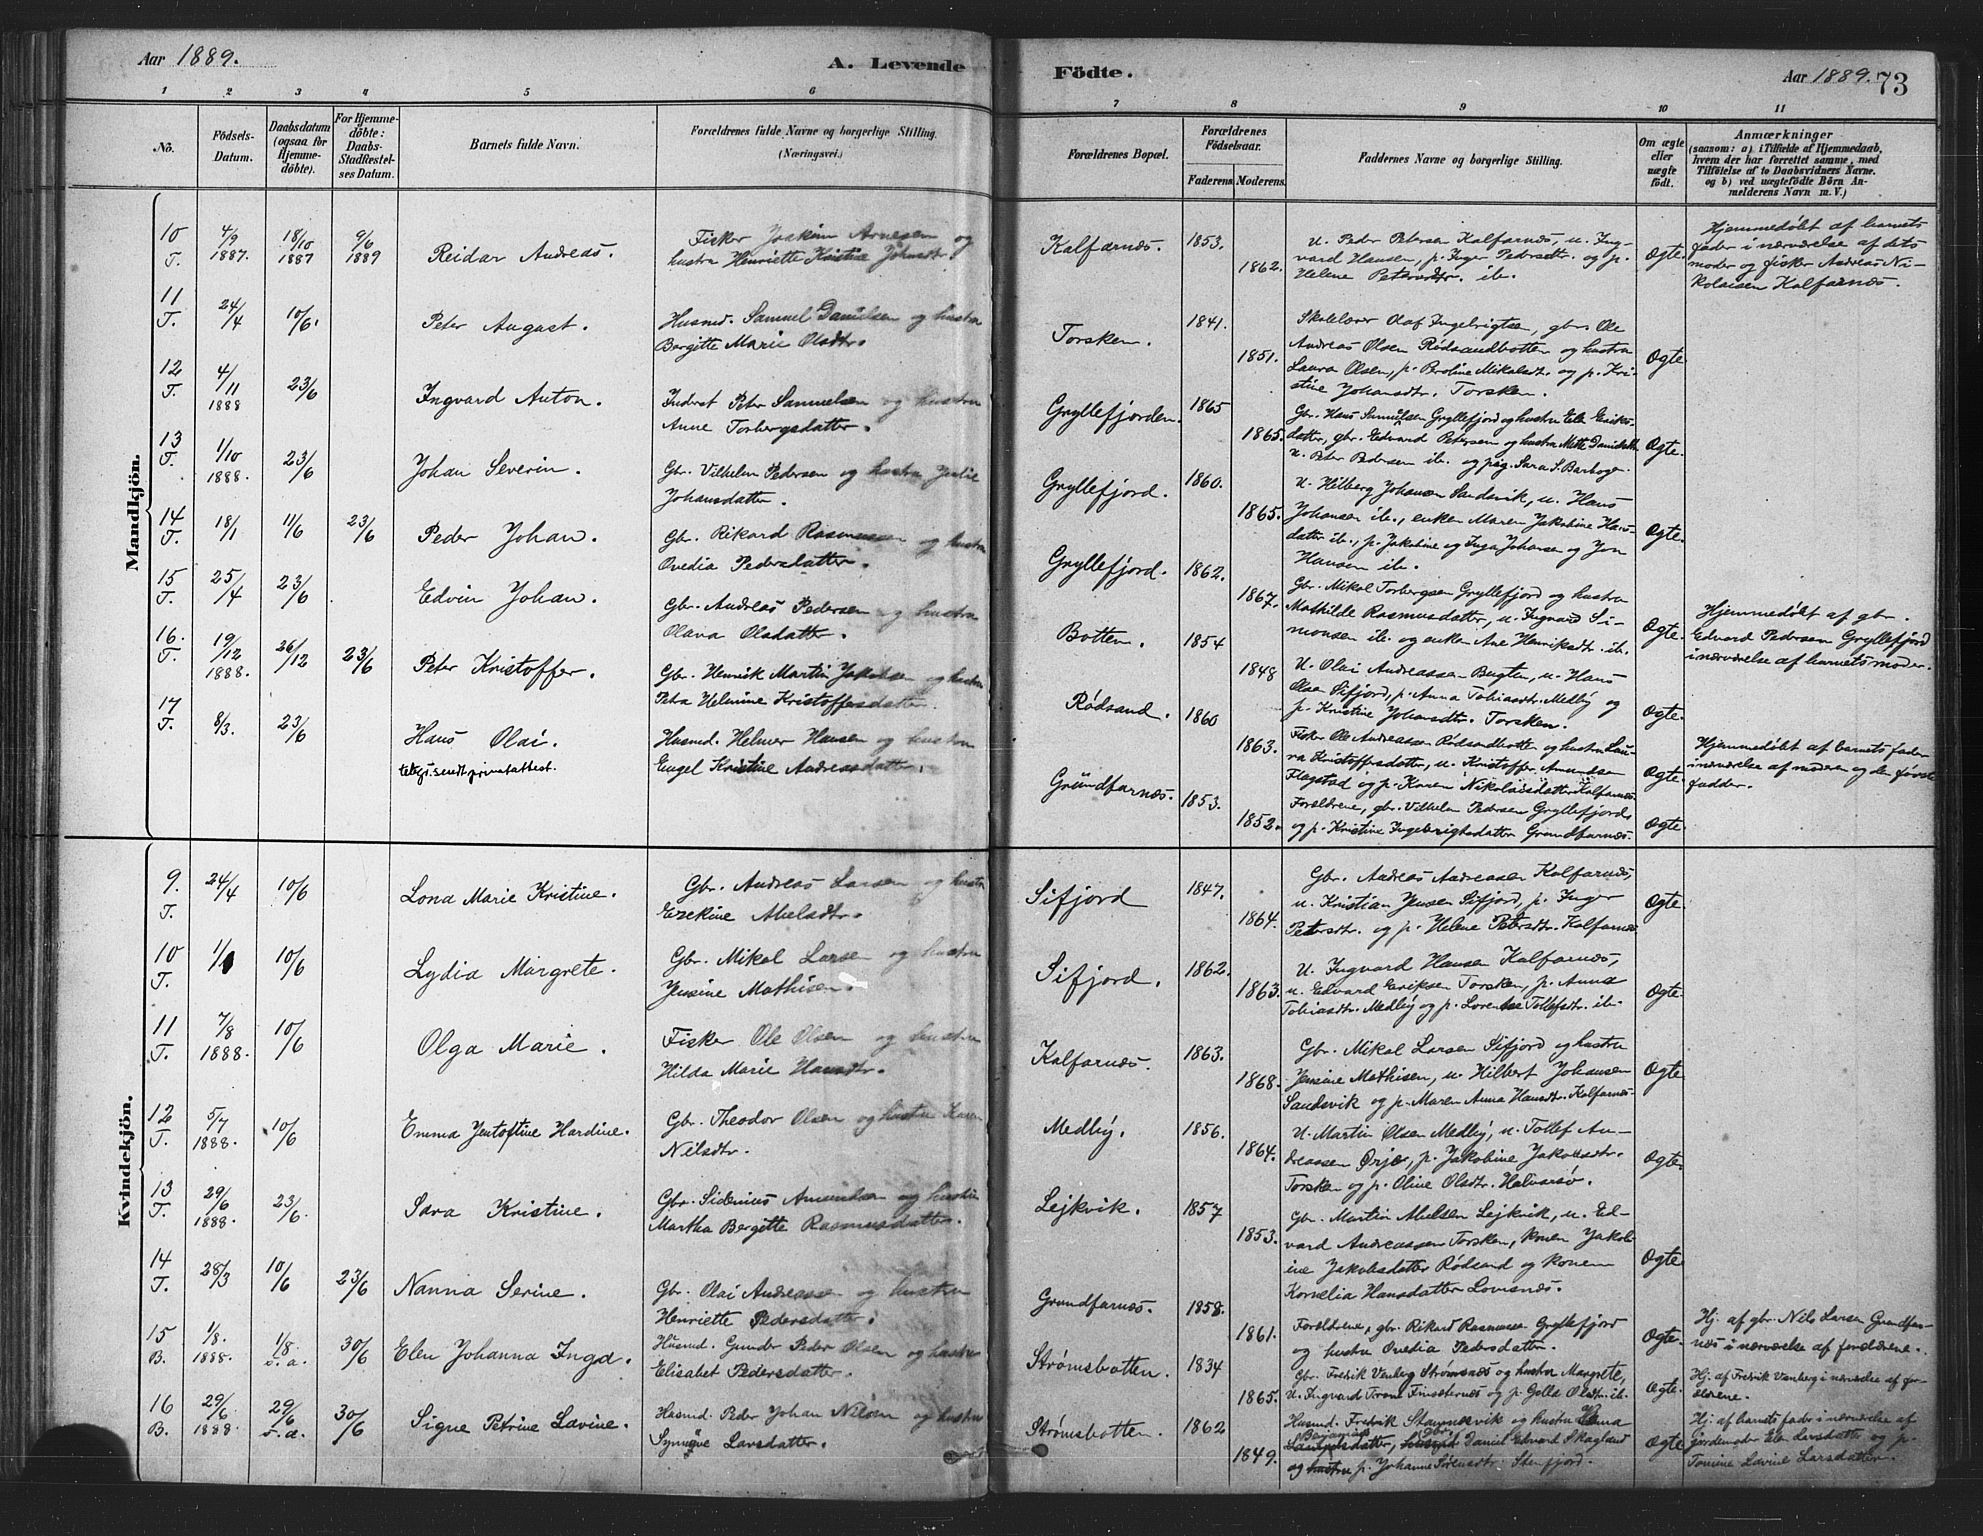 Aar 1889.
A. Levende Födte.
Aar 1889. 73
1 2 3 4 5 6 7 8 9 10 11
No.
Födsels-Datum.
Daabsdatum (ogsaa for Hjemmedöbte).
For Hjemmedöbte: Daabs-Stadfæstelses Datum.
Barnets fulde Navn.
Forældrenes fulde Navne og borgerlige Stilling. (Næringsvei.)
Forældrenes Bopæl.
Forældrenes Födselsaar.
Faderens. Moderens.
Faddernes Navne og borgerlige Stilling.
Om ægte eller uægte födt.
Anmærkninger
(saasom: a) i Tilfælde af Hjemmedaab, hvem der har forrettet samme, med Tilföielse af to Daabsvidners Navne. og b) ved uægtefödte Börn Anmelderens Navn m. V.)
Mandkjön.
10 T. 4/9 1887. 18/10 1887 9/6 1889 Reidar Andreas.
Fisker Joakim Arnesen og
hustru Henriette Kristine Johnsdtr.
Kalfarnæs. 1853. 1862.
U. Peder Petersen Kalfarnæs, u. Ing-
vard Hansen, p. Inger Pedersdtr. og p.
Helene Petersdtr. ib.
Ægte.
Hjemmedøbt af barnets
fader i nærværelse af dets
moder og fisker Andreas Ni-
kolaisen Kalfarnæs.
11 T. 24/4 10/6. Peter August.
Husmd. Samuel Danielsen og hustru
Bergitte Marie Olsdtr.
Torsken. 1841. 1851.
Skolelærer Olaf Ingebrigtsen, gbr. Ole
Andreas Olsen Rødsandbotten og hustru
Laura Olsen, p. Broline Mikalsdtr. og p. Kri
stine Johansdtr. Torsken.
Ægte
12 T. 4/11 1888 23/6 Ingvard Anton.
Inderst Peter Samuelsen og hustru
Anne Torbergsdatter.
Gryllefjorden. 1865 1865.
Gbr. Hans Samuelsen Gryllefjord og hustru Ele Eriks-
datter, gbr. Edvard Petersen og hustru Mette Danielsdtr.
u. Peter Pedersen ib. og pig. Sara S. Barbogen
Ægte.
13 T. 1/10 1888. 23/6 Johan Severin.
Gbr. Vilhelm Pedersen og hustru
Johansdatter.
Gryllefjord. 1860. 1865.
U. Hilberg Johansen Sandsvik, u. Hans
Johansen ib., enken Maren Jakobine Hans-
datter ib., p. Jakobine og Inga Johanse og Jon
Hansen ib.
Ægte.
14 T. 18/1 11/6 23/6 Peder Johan.
Gbr. Rikard Rasmussen og hustru
Ovedia Pedersdatter.
Gryllefjord. 1862. 1867.
Gbr. Mikal Torbergsen Gryllefjord og hustru
Mathilde Rasmusdatter, u. Ingvard Si-
monsen ib. og enken Ane Henriksdtr. ib.
Ægte.
Hjemmedøbt af gbr.
Edvard Pedersen Gryllefjord
i nærværelse af barnets moder.
15 T. 25/4 23/6 Edvin Johan.
Gbr. Andreas Pedersen og hustru
Olava Olsdatter.
Botten. 1854 1848
U. Olai Andreassen Bugten, u. Hans
Olsen Sifjord, p. Anna Tobiasdtr. Medby og
p. Kristine Johansdtr. Torsken.
Ægte.
16. T. 19/12 1888. 26/12 23/6 Peter Kristoffer.
Gbr. Henrik Martin Jakobsen og hustru
Petra Helmine Kristoffersdatter.
Rødsand. 1860 1863.
Fisker Ole Andreassen Rødsandbotten og hustru Lau-
ra Kristoffersdatter, u. Kristoffer Amundsen
Flagstad og p. Karen Nikolaisdatter Kalfarnæs.
Ægte
Hjemmedøbt af barnets fader
i nærværelse af moderen og den første
fadder.
17 T. 8/3. 23/6 Hans Olai.
telegr. sendt privatattest.
Husmd. Helmer Hansen og hustru
Engel Kristine Andreasdatter.
Grundfarnæs. 1853. 1852.
Forældrene, gbr. Vilhelm Pedersen Gryllefjord,
og p. Kristine Ingebrigtsdatter Grundfarnæs.
Ægte.
Kvindekjön.
9. T. 24/4 10/6 Lona Marie Kristine.
Gbr. Andreas Larsen og hustru
Ezekine Abelsdtr.
Sifjord 1847. 1864.
Gbr. Andreas Andreassen Kalfarnæs,
u. Kristian Jensen Sifjord, p. Inger
Petersdtr. og p. Helene Petersdtr. Kalfarnæs
Ægte.
10 T. 10/6 Lydia Margrete.
Gbr. Mikal Larsen og hustru
Jensine Mathisen.
Sifjord. 1862. 1863.
U. Ingvard Hansen Kalfarnæs,
u. Edvard Eriksen Torsken, p. Anna
Tobiasdtr. Medby og p. Lorentse Tollefsdtr. ib.
Ægte.
11 T. 7/8 1888. 10/6 Olga Marie.
Fisker Ole Olsen og hustru
Hilda Marie Hansdtr.
Kalfarnæs. 1863. 1868.
Gbr. Mikal Larsen Sifjord og hustru
Jensine Mathisen, u. Hilbert Johansen
Sandsvik og p. Maren Anna Hansdtr. Kalfarnæs.
Ægte
12 T. 5/7 1888. 10/6 Emma Jentoftine Hardine.
Gbr. Theodor Olsen og hustru Karen
Nilsdtr.
Medby. 1856. 1864.
U. Martin Olsen Medby, u. Tollef An-
dreassen Ørje, p. Jakobine Jakobsdtr.
Torsken og p. Oline Olsdtr. Halvarsø.
Ægte.
13 T. 29/6 1888. 23/6. Sara Kristine.
Gbr. Sidenius Amundsen og hustru
Martha Bergitte Rasmusdatter.
Lejkvik. 1857 1853.
Gbr. Martin Abelsen Lejkvik, u. Ed-
vard Andreassen Torsken, konen Jakob-
ine Jakobsdatter Rødsand og konen
Kornelia Hansdatter Lovisnæs.
Ægte
14 T. 28/3 10/6 23/6 Nanna Serine.
Gbr. Olai Andreassen og hustru
Henriette Pedersdatter.
Grundfarnæs. 1858. 1861.
Forældrene, gbr. Rikard Rasmussen Gryllefjord
og hustru Ovedia Pedersdatter.
Ægte.
Hj. af gbr. Nils Larsen Grundfar-
næs i nærværelse af forældrene.
15 B. 1/8. 1888. 1/8 s. a. 30/6 Elen Johanna Inga.
Husmd. Gunder Peder Olsen og hustru
Elisabet Pedersdatter.
Strømsbotten. 1834 1865.
Gbr. Fredrik Venberg Strømsnæs og hustru Margrete,
u. Ingvard Trane Finsæternæs og p. Golla Olsdtr. ib.
Ægte.
Hj. af Fredrik Venberg i nærværelse af for-
ældrene.
16 B. 29/6 1888. 29/6 s. a. 30/6 Signe Petrine Lavine.
Husmd. Peder Johan Nilsen og hustru
Synnøve Larsdatter.
Strømsbotten. 1862 1849.
Husmd. Fredrik Stamnesvik og hustru Anna
Benjamins gbr.
datter, Daniel Edvard Skagland
og hustru p. Johanne Sørensdtr. Stenfjord.
Ægte
Hj. af barnets fader i nærværelse af
jordemoder Elen Larsdatter og p.
Tomine Lavine Larsdatter.